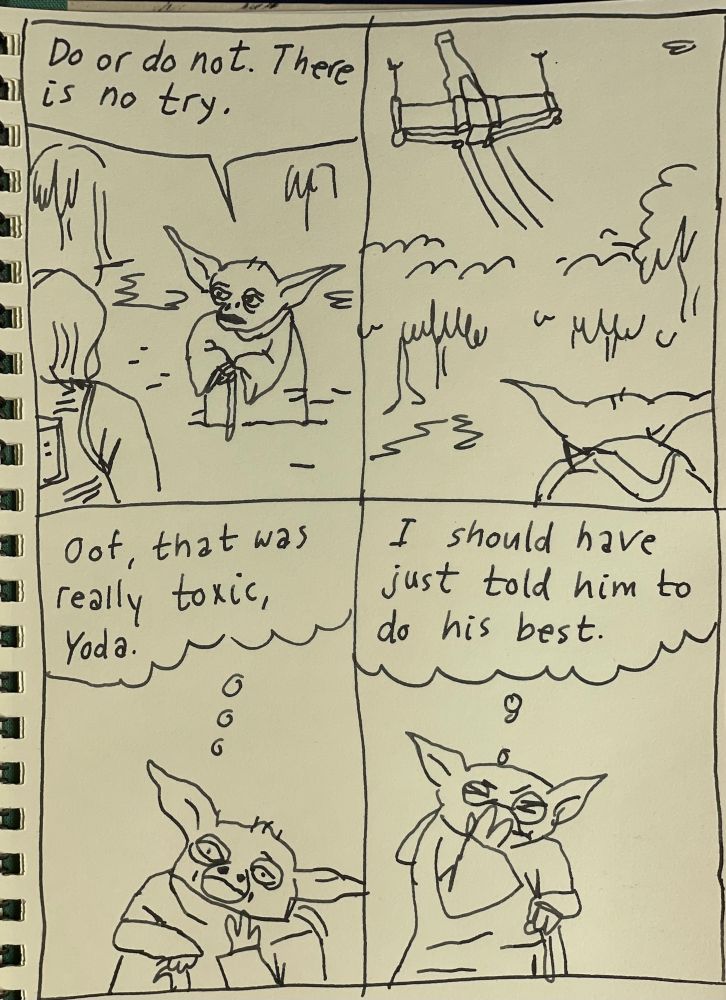 Do or do not. There
is no try.
Oof, that was
really toxic,
Yoda.
I should have
just told him to
do his best.